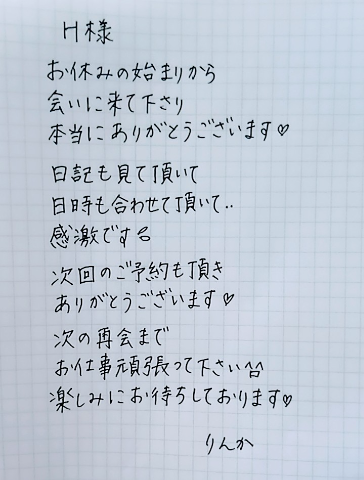 H様
お休みの始まりから
会いに来て下さり
本当にありがとうございます♡
日記も見て頂いて
日時も合わせて頂いて..
感激です
次回のご予約も頂き
ありがとうございます♡
次の再会まで
お仕事頑張って下さい^^
楽しみにお待ちしております♡
りんか